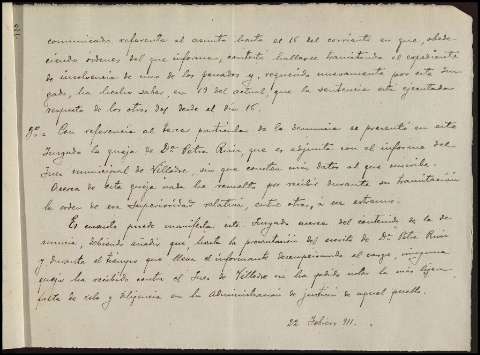 comunicado referente al asunto hasta el 16 del corriente en que, obede-
ciendo órdenes del que informa, contestó hallarse tramitando el expediente
de insolvencia de uno de los penados y, requerido nuevamente por este Juz-
gado, ha hecho saber, en 19 del actual, que la sentencia está ejecutada
respecto de los otros dos desde el dia 16.
Con referencia al tercer particular de la denuncia se presentó en este
Juzgado la queja de Dª Petra Ruiz que es adjunta con el informe del
Juez municipal de Villodre, sin que consten más datos al que suscribe.
Acerca de esta queja nada ha resuelto por recibir durante su tramitación
la orden de esa Superioridad relativa, entre otros, á ese extremo.
Es cuanto puede manifestar este Juzgado acerca del contenido de la de-
nuncia, debiendo añadir que, hasta la presentación del escrito de Dª Petra Ruiz
y durante el tiempo que lleva el informante desempeñando el cargo, ninguna
queja ha recibido contra el Juez de Villodre ni ha podido notar la más ligera
falta de celo y diligencia en la Administración de justicia de aquel pueblo.
22 Febrero 911.